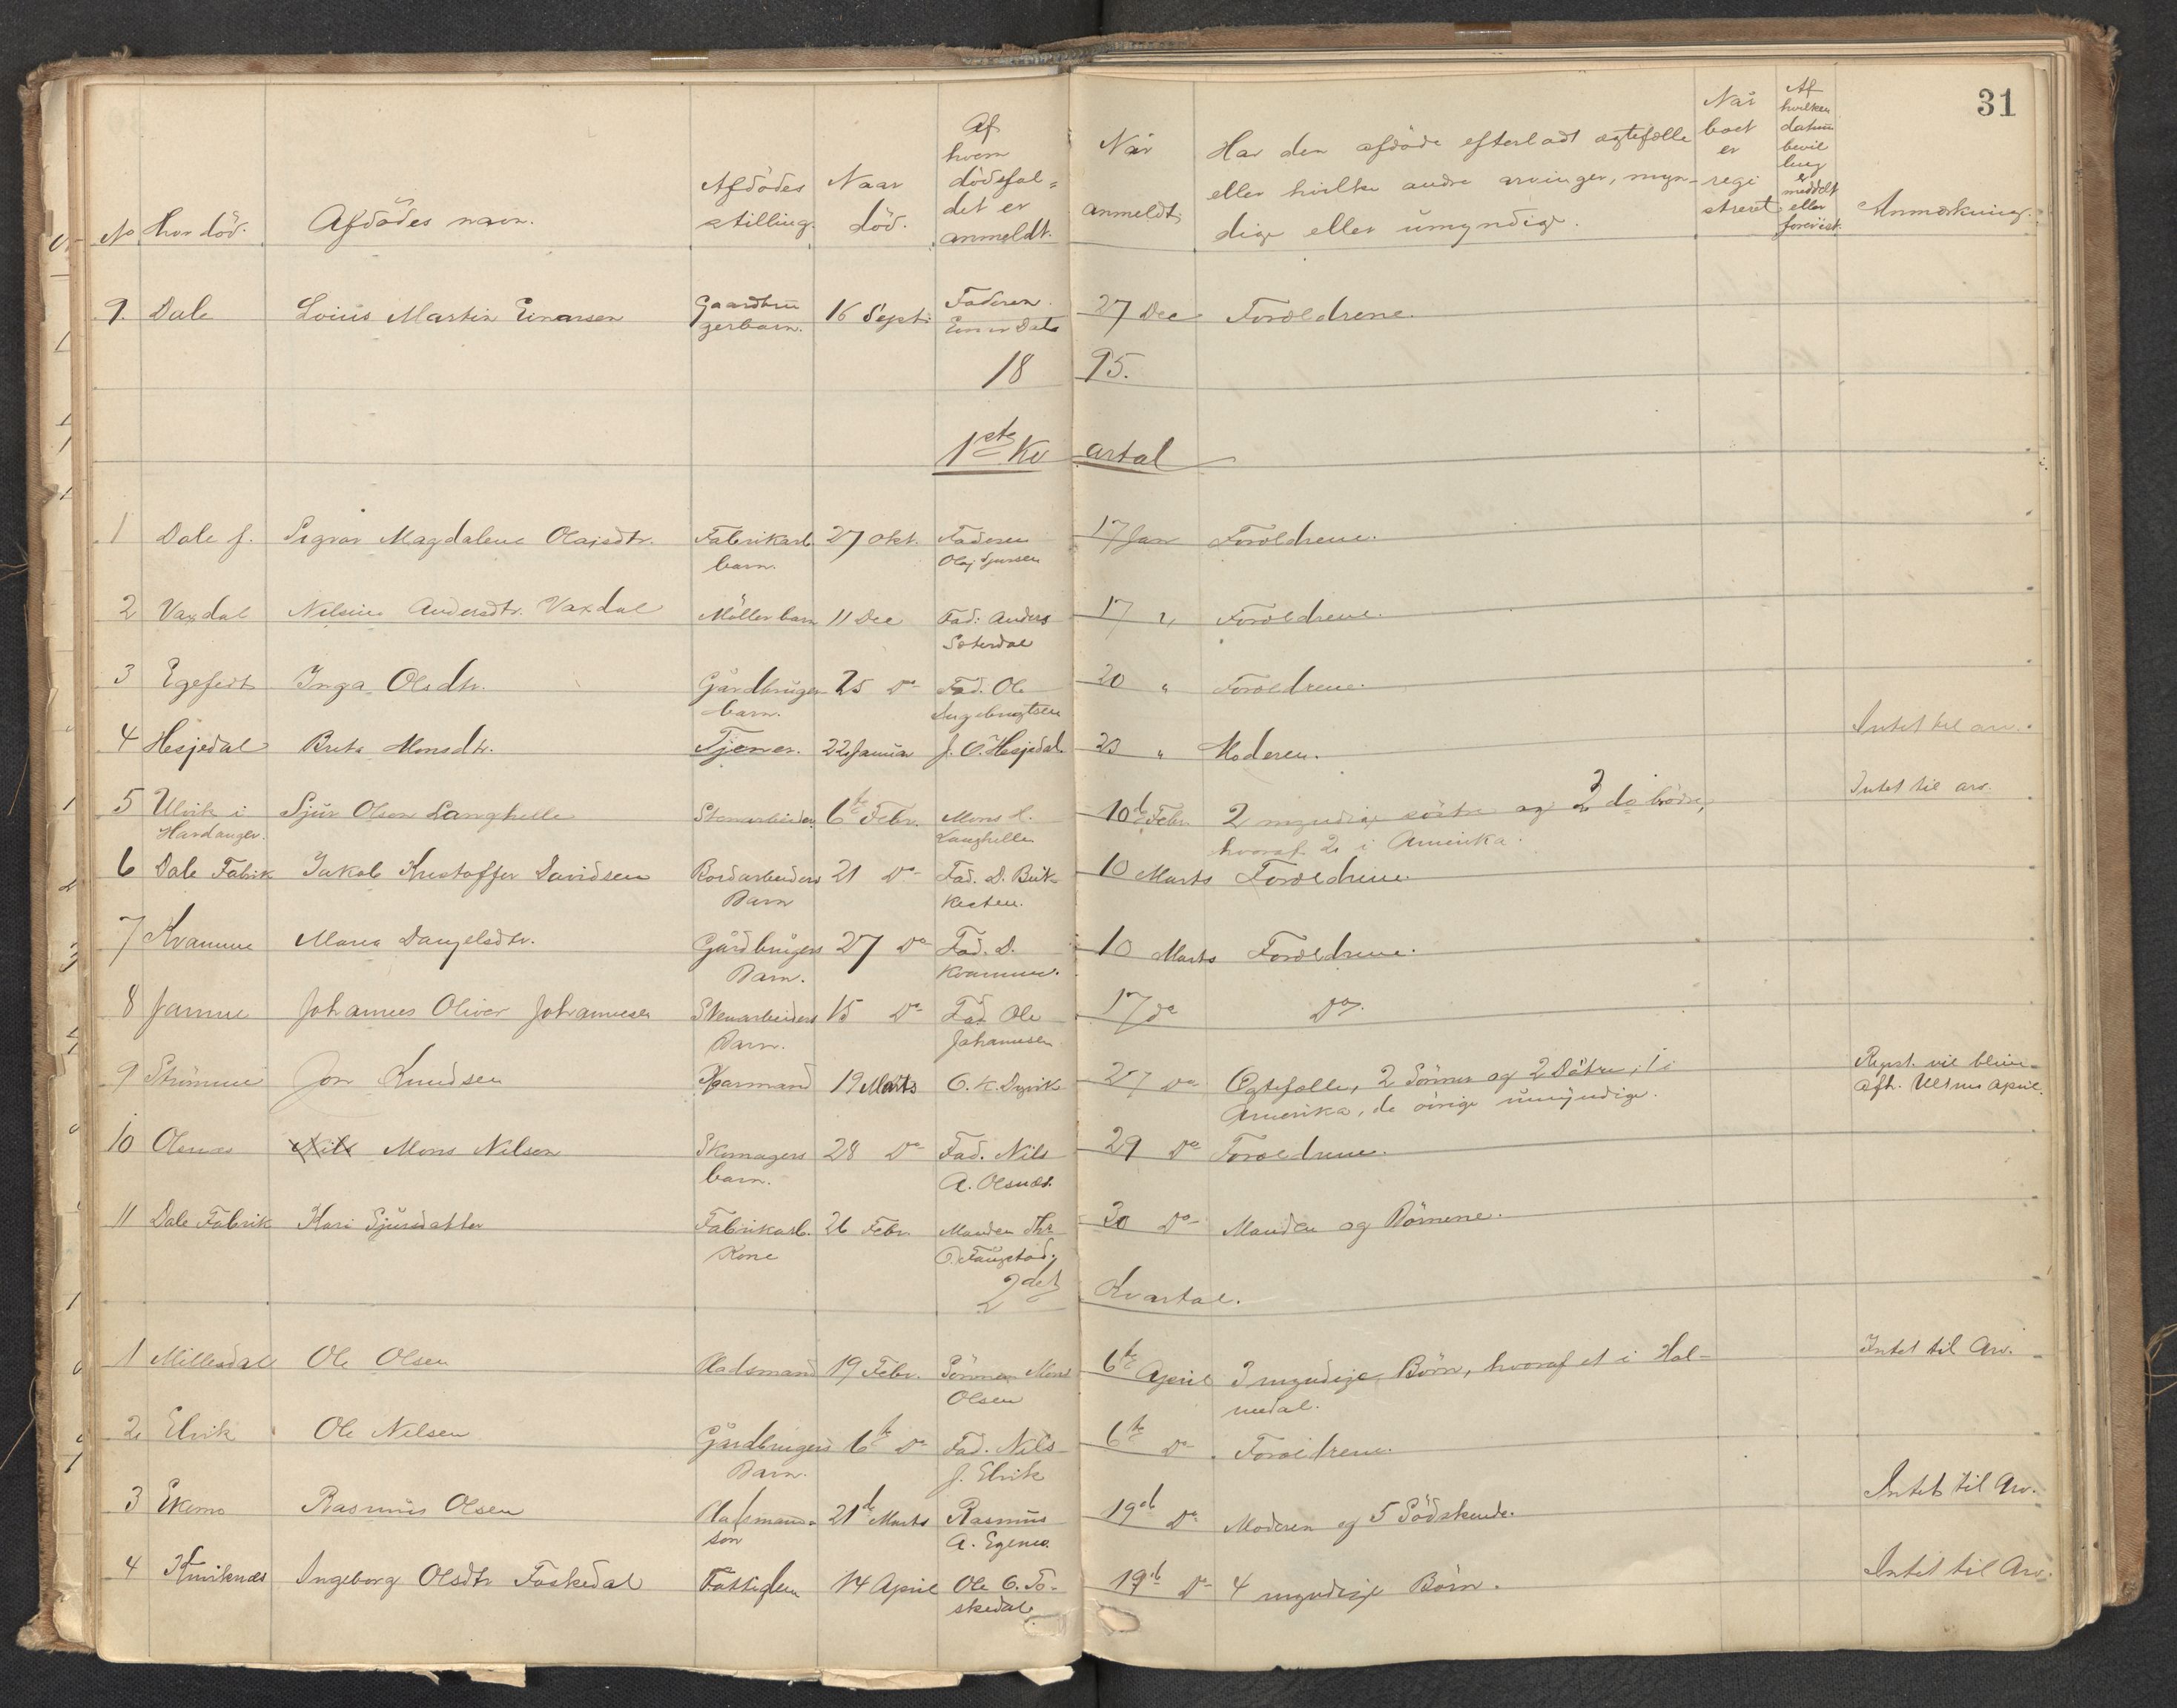 31
No
Hvor död.
Afdödes navn.
Afdödes
stilling.
Naar
död.
Af
hvem
dödsfal-
det er
anmeldt.
Når
anmeldt.
Har den afdöde efterladt ægtefælle
eller hvilke andre arvinger, myn-
dige eller umyndige.
Når
boet
er
regi
streret
Af
hvilken
datum
bevil
ling
er
meddelt
eller
forevist.
Anmærkning.
9. Dale Loüis Martin Einarsen Gaardbrü 16 Sept: Faderen 27 Dec Forældrene.
gerbarn. Einar Dale
18 95.
1ste Kv artal
1 Dale f. Sigvor Magdalene Olafsdtr. Fabrikarb. 27 Okt. Faderen 17 Jan Forældrene.
barn. Olaf Sjursen
2 Vaxdal Nilsine Andersdtr. Vaxdal Möllerbarn 11 Dec Fad: Anders 17 " Forældrene.
Sæterdal
3 Egefedt Inga Olsdtr. Gårdbruger 25 Do Fad. Ole 20 " Forældrene.
barn. Ingebrigtsen
4 Hesjedal Brita Monsdtr. Tjener. 22 Januar J. O. Hesjedal 23 " Moderen. Intet til arv.
5 Ulvik i Sjur Olsen Langhelle Stenarbeider 6te Febr. Mons O. 10de Febr. 2 myndige söstre og 3 do brödre, Intet til arv.
Hardanger. Langhelle hvoraf 2 i Amerika.
6 Dale Fabrik Jakob Kristoffer Davidsen Bordarbeiders 21 Do Fad. D. Birk 10 Marts Forældrene.
Barn
7 Kvamme Maria Danjelsdtr. Gårdbrugers 27 Do Fad. D. 10 Marts Forældrene.
Barn. Kvamme.
8 Jamne Johannes Oliver Johannesen Stenarbeiders 15 Do Fad Ole 17 do Do.
Barn. Johannesen
9 Strömme Jon Knudsen Kaarmand 19 Marts O. K. Dyvik 27 Do Ægtefælle, 2 Sönner og 2 Dötre, 1 i Regist. vil blive
Amerika, de övrige umyndige. afh. Ultmo April.
10 Olsnæs Nils Mons Nilsen Skomagers 28 Do Fad. Nils 29 Do Forældrene.
barn. A. Olsnæs.
11 Dale Fabrik Kari Sjursdatter Fabrikarb. 26 Febr. Manden Ths 30 Do Manden og Börnene.
Kone O. Faugstad.
2det Kvartal.
1 Millesdal Ole Olsen Pladsmand 19 Febr. Sönnen Mons 6te April 3 myndige Börn, hvoraf et i Hal- Intet til Arv.
Olsen medal.
2 Elvik Ole Nilsen Gårdbrugers 6te Do Fad. Nils 6te Do Forældrene.
Barn. J. Elvik
3 Ekemo Rasmus Olsen Pladsmands 21de Marts Rasmus 19de Do Moderen og 5 Södskende. Intet til Arv.
son A. Egemo.
4 Kvviknæs Ingeborg Olsdtr Foskedal Fattiglem 14 April Ole O. Fo- 19de Do 4 myndige Börn. Intet til Arv.
skedal